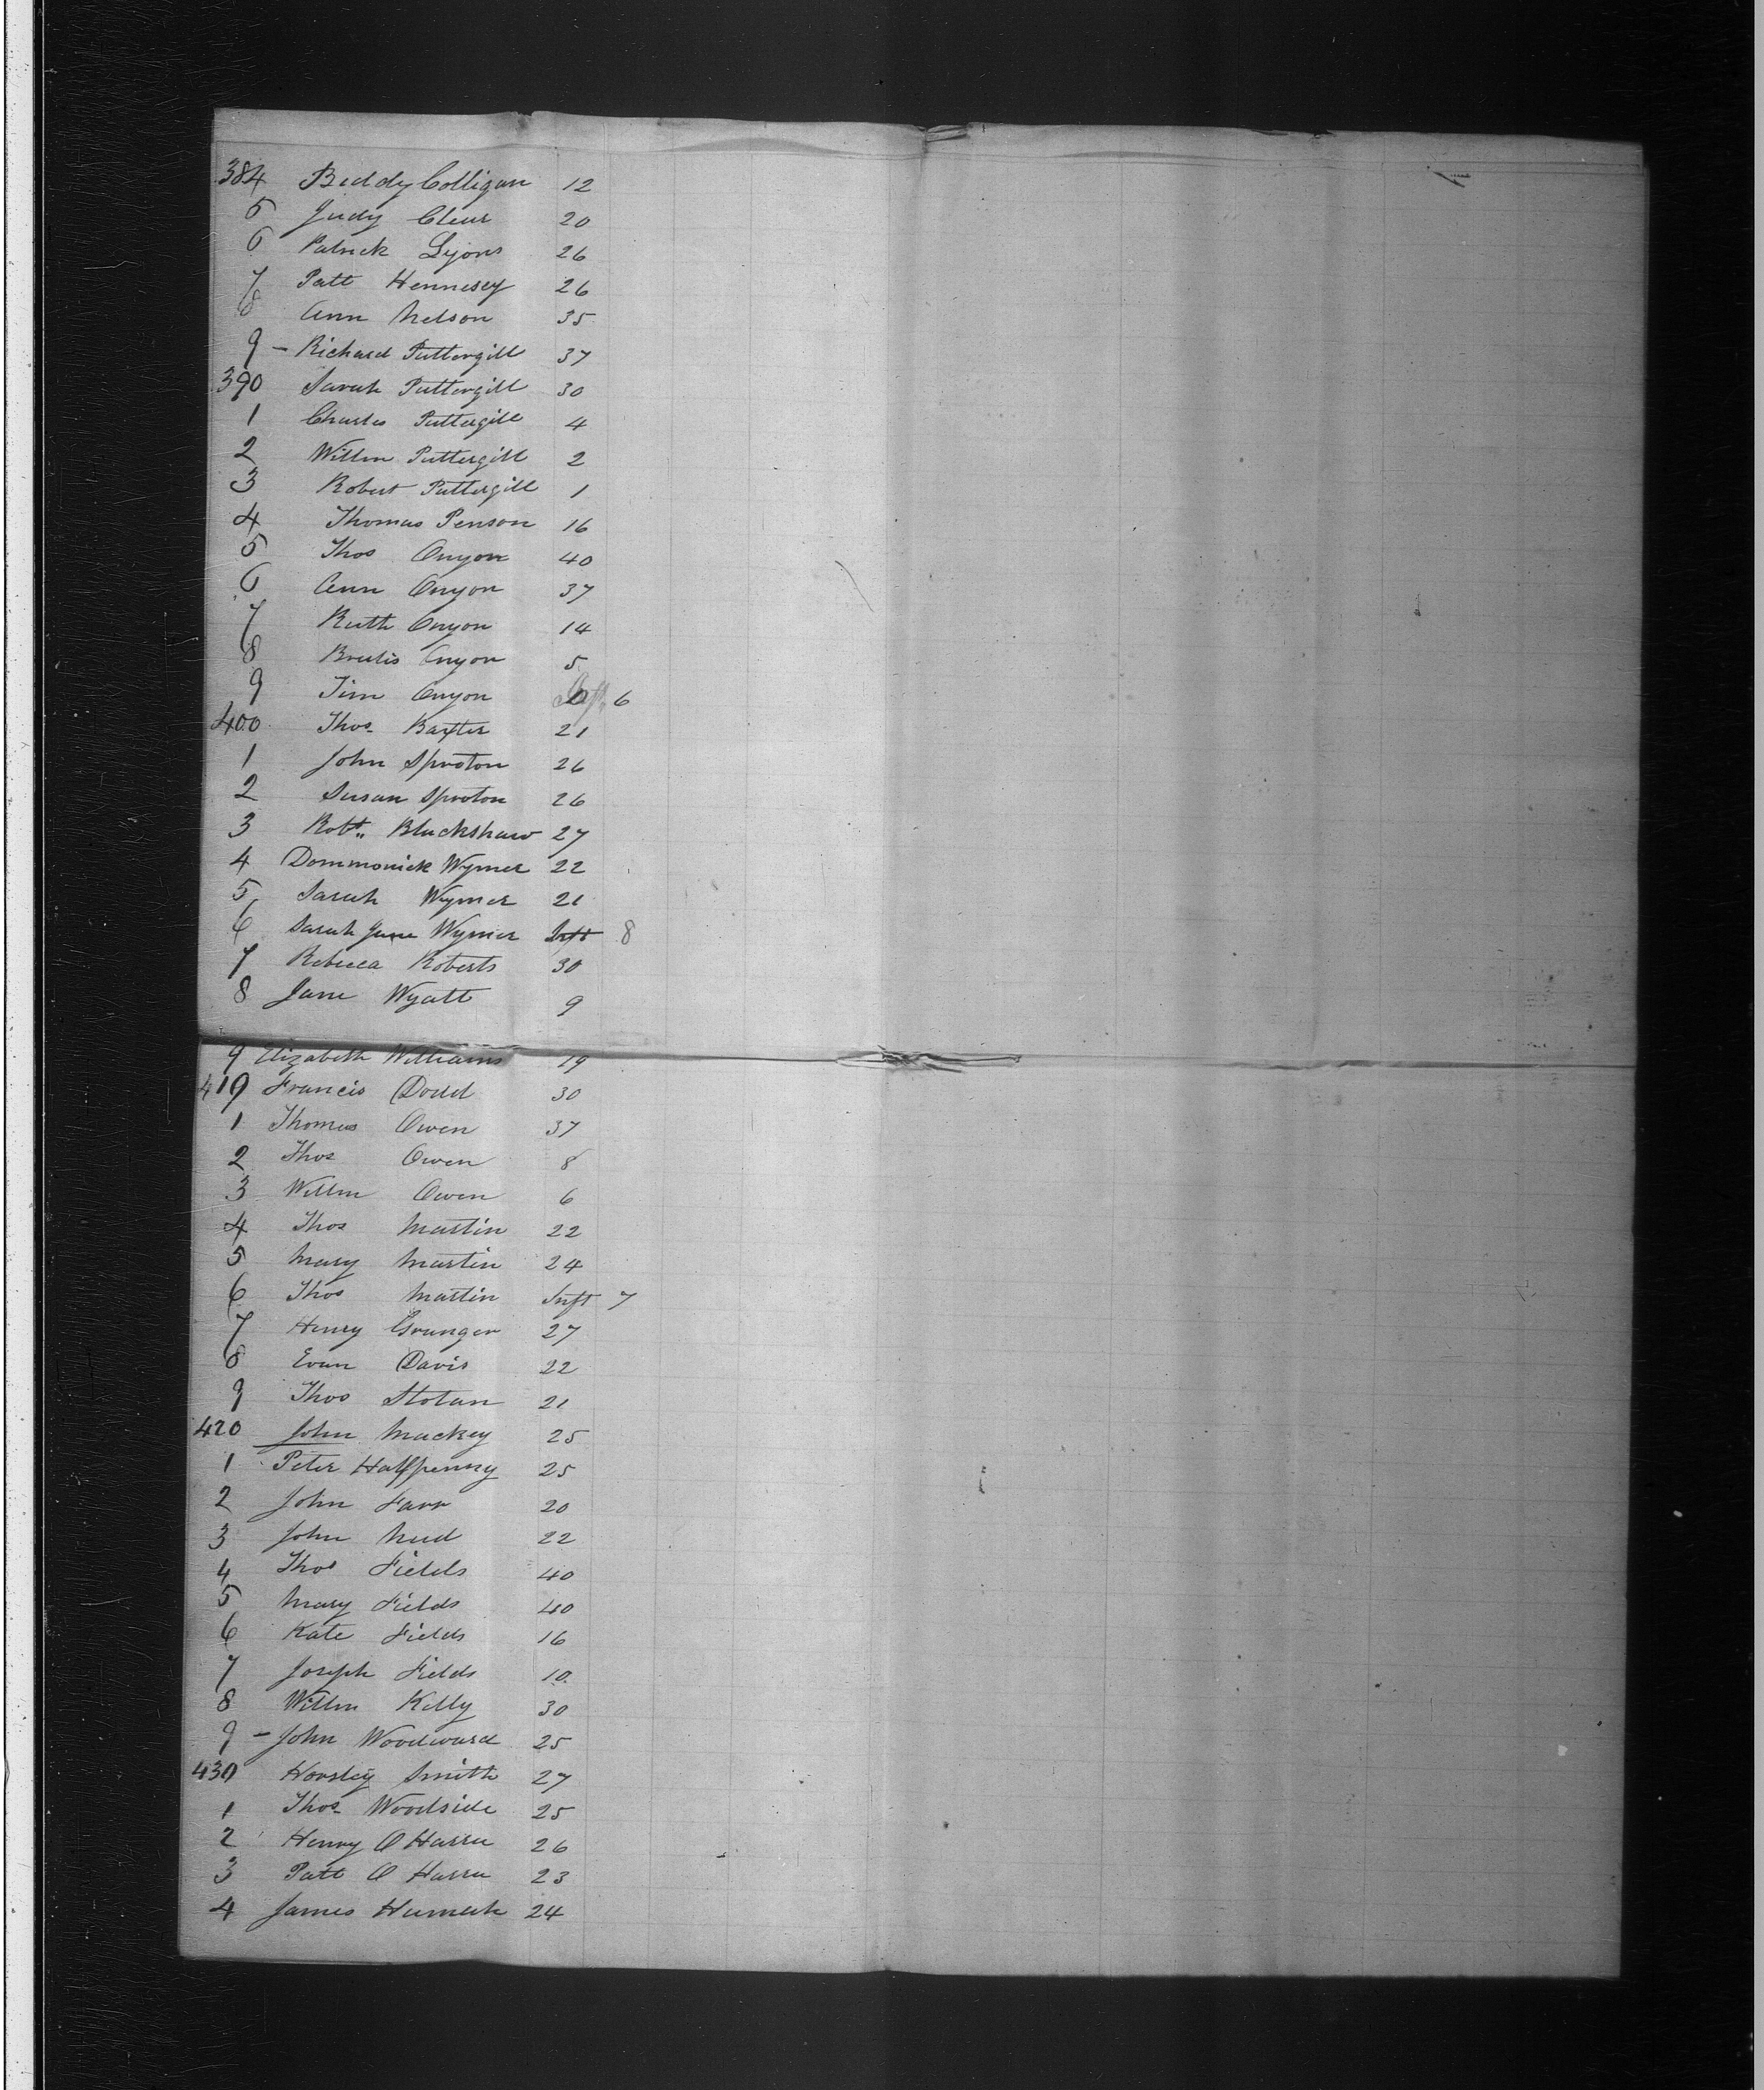 384 Biddy Colligan 12
5 Judy Clear 20
6 Patrick Lyons 26
7 Patt Hennesey 26
8 Ann Nelson 35
9 – Richard Puttergill 37
390 Sarah Puttergill 30
1 Charles Puttergill 4
2 Willm Puttergill 2
3 Robert Puttergill 1
4 Thomas Penson 16
5 Thos Onyon 40
6 Ann Onyon 37
7 Ruth Onyon 14
8 Brutis Onyon 5
9 Jim Onyon 6
400 Thos Baxter 21
1 John Sproton 26
2 Susan Sproton 26
3 Robt Blackshaw 27
4 Dommonick Wymer 22
5 Sarah Wymer 21
6 Sarah Jane Wymer Inft 8
7 Rebecca Roberts 30
8 Jane Wyatt 9
9 Elizabeth Williams 19
410 Francis Dodd 30
1 Thomas Owen 37
2 Thos Owen 8
3 Willm Owen 6
4 Thos Martin 22
5 Mary Martin 24
6 Thos Martin Inft 7
7 Henry Granger 27
8 Evan Davis 22
9 Thos Stotan 21
420 John Mackey 25
1 Peter Halfpenny 25
2 John Farr 20
3 John 22
4 Thos Fields 40
5 Mary Fields 40
6 Kate Fields 16
7 Joseph Fields 10
8 Willm Kelly 30
9 – John Woodward 25
430 Horsley Smith 27
1 Thos Woodside 25
2 Henry O Harra 26
3 Patt O Harra 23
4 James 24